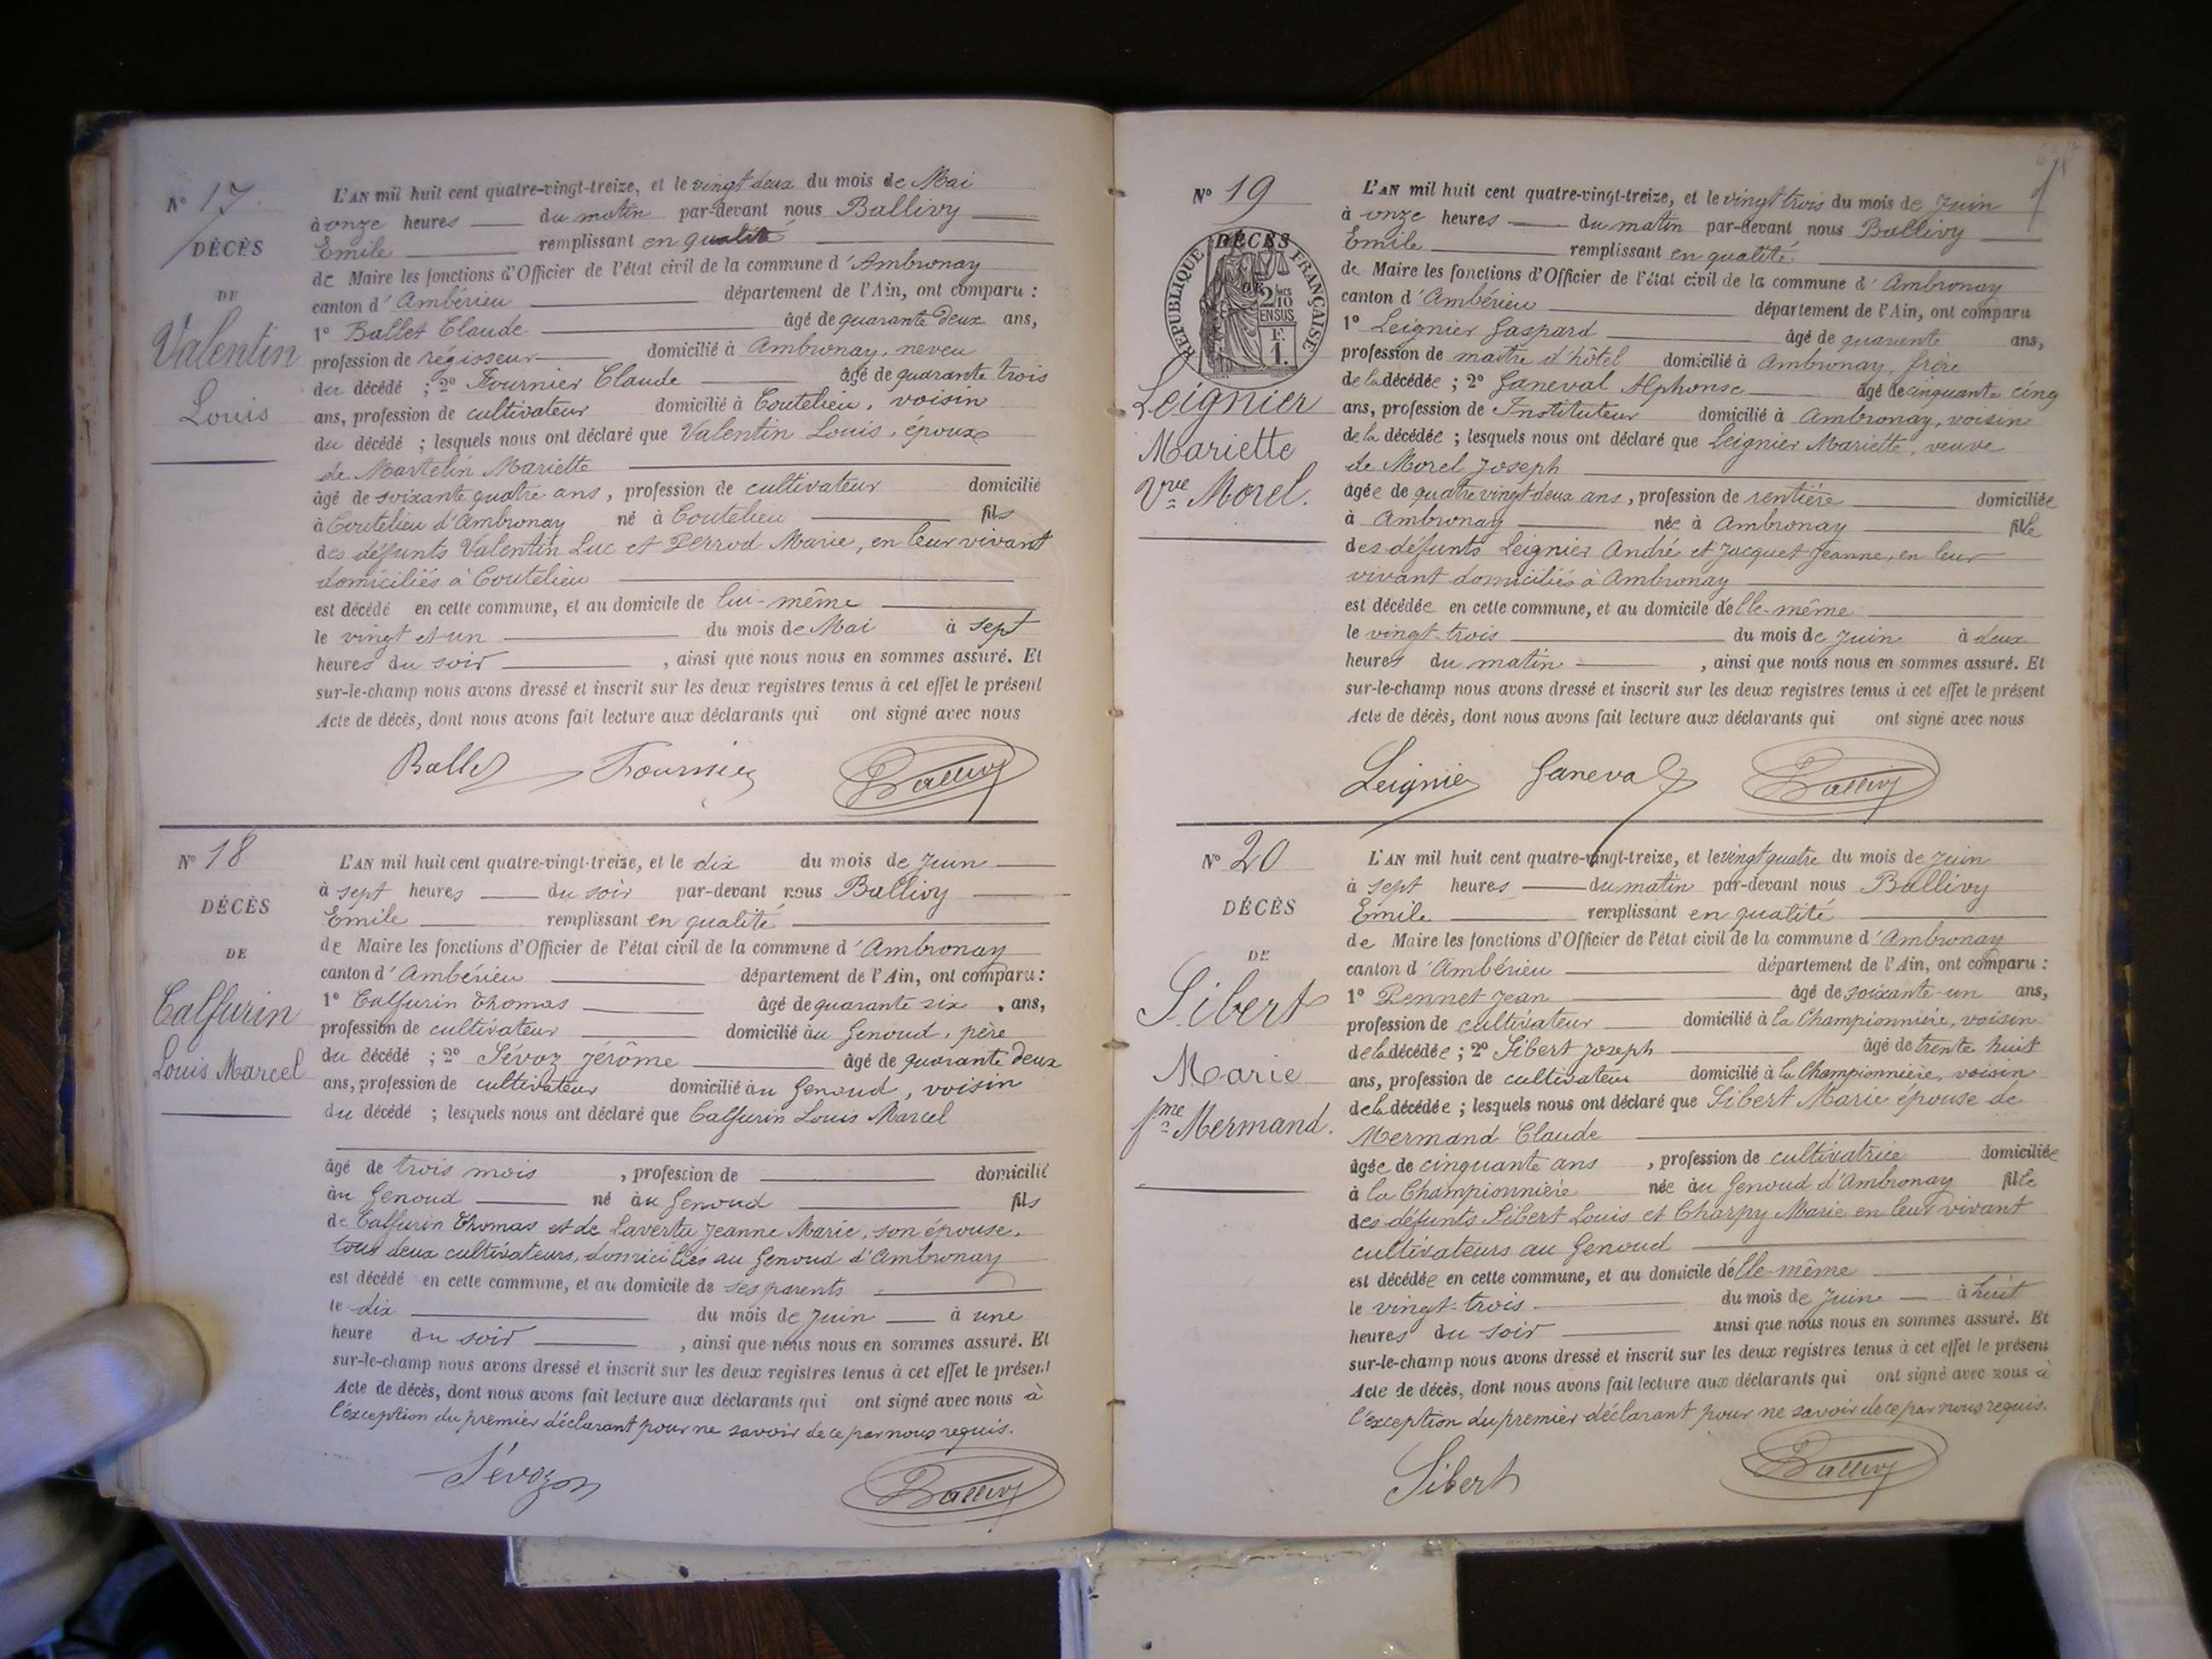 N° 17.
DÉCÈS
DE
Valentin
Louis
L'AN mil huit cent quatre-vingt-treize, et le vingt deux du mois de Mai
à onze heures du matin par-devant nous Ballivy
Emile remplissant en qualité
de Maire les fonctions d'Officier de l'état civil de la commune d'Ambronay
canton d'Ambérieu département de l'Ain, ont comparu :
1° Ballet Claude âgé de quarante deux ans,
profession de régisseur domicilié à Ambronay, neveu
du décédé ; 2° Fournier Claude âgé de quarante trois
ans, profession de cultivateur domicilié à Coutelieu, voisin
du décédé ; lesquels nous ont déclaré que Valentin Louis, époux
de Martelin Mariette
âgé de soixante quatre ans, profession de cultivateur domicilié
à Coutelieu d'Ambronay né à Coutelieu fils
des défunts Valentin Luc et Perrod Marie, en leur vivant
domiciliés à Coutelieu
est décédé en cette commune, et au domicile de lui-même
le vingt et un du mois de Mai à sept
heures du soir, ainsi que nous nous en sommes assuré. Et
sur-le-champ nous avons dressé et inscrit sur les deux registres tenus à cet effet le présent
Acte de décès, dont nous avons fait lecture aux déclarants qui ont signé avec nous
Ballet Fournier Ballivy
N° 18
DÉCÈS
DE
Calfurin
Louis Marcel
L'AN mil huit cent quatre-vingt-treize, et le dix du mois de Juin
à sept heures du soir par-devant nous Ballivy
Emile remplissant en qualité
de Maire les fonctions d'Officier de l'état civil de la commune d'Ambronay
canton d'Ambérieu département de l'Ain, ont comparu :
1° Calfurin Thomas âgé de quarante six ans,
profession de cultivateur domicilié au Genoud, père
du décédé ; 2° Sévoz Jérôme âgé de quarante deux
ans, profession de cultivateur domicilié au Genoud, voisin
du décédé ; lesquels nous ont déclaré que Calfurin Louis Marcel
âgé de trois mois, profession de domicilié
au Genoud né au Genoud fils
de Calfurin Thomas et de Lavertu Jeanne Marie, son épouse,
tous deux cultivateurs, domiciliés au Genoud d'Ambronay
est décédé en cette commune, et au domicile de ses parents
le dix du mois de Juin à une
heure du soir, ainsi que nous nous en sommes assuré. Et
sur-le-champ nous avons dressé et inscrit sur les deux registres tenus à cet effet le présent
Acte de décès, dont nous avons fait lecture aux déclarants qui ont signé avec nous à
l'exception du premier déclarant pour ne savoir de ce par nous requis.
Sévoz Ballivy
N° 19
DÉCÈS
DE
RÉPUBLIQUE FRANÇAISE
2/10 EN SUS
F.
1.
Leignier
Mariette
Vve Morel.
L'AN mil huit cent quatre-vingt-treize, et le vingt trois du mois de Juin
à onze heures du matin par-devant nous Ballivy
Emile remplissant en qualité
de Maire les fonctions d'Officier de l'état civil de la commune d'Ambronay
canton d'Ambérieu département de l'Ain, ont comparu
1° Leignier Gaspard âgé de quarante ans,
profession de maître d'hôtel domicilié à Ambronay, frère
de la décédée ; 2° Ganeval Alphonse âgé de cinquante cinq
ans, profession de Instituteur domicilié à Ambronay, voisin
de la décédée ; lesquels nous ont déclaré que Leignier Mariette, veuve
de Morel Joseph
âgée de quatre vingt deux ans, profession de rentière domiciliée
à Ambronay née à Ambronay fille
des défunts Leignier André et Jacquet Jeanne, en leur
vivant domiciliés à Ambronay
est décédée en cette commune, et au domicile d'elle-même
le vingt-trois du mois de Juin à deux
heures du matin, ainsi que nous nous en sommes assuré. Et
sur-le-champ nous avons dressé et inscrit sur les deux registres tenus à cet effet le présent
Acte de décès, dont nous avons fait lecture aux déclarants qui ont signé avec nous
Leignier Ganeval Ballivy
N° 20
DÉCÈS
DE
Sibert
Marie
fme Mermand.
L'AN mil huit cent quatre-vingt-treize, et le vingt quatre du mois de Juin
à sept heures du matin par-devant nous Ballivy
Emile remplissant en qualité
de Maire les fonctions d'Officier de l'état civil de la commune d'Ambronay
canton d'Ambérieu département de l'Ain, ont comparu :
1° Pennet Jean âgé de soixante-un ans,
profession de cultivateur domicilié à la Championnière, voisin
de la décédée ; 2° Sibert Joseph âgé de trente huit
ans, profession de cultivateur domicilié à la Championnière, voisin
de la décédée ; lesquels nous ont déclaré que Sibert Marie épouse de
Mermand Claude
âgée de cinquante ans, profession de cultivatrice domiciliée
à la Championnière née au Genoud d'Ambronay fille
des défunts Sibert Louis et Charpy Marie en leur vivant
cultivateurs au Genoud
est décédée en cette commune, et au domicile d'elle-même
le vingt-trois du mois de Juin à huit
heures du soir ainsi que nous nous en sommes assuré. Et
sur-le-champ nous avons dressé et inscrit sur les deux registres tenus à cet effet le présent
Acte de décès, dont nous avons fait lecture aux déclarants qui ont signé avec nous à
l'exception du premier déclarant pour ne savoir de ce par nous requis.
Sibert Ballivy